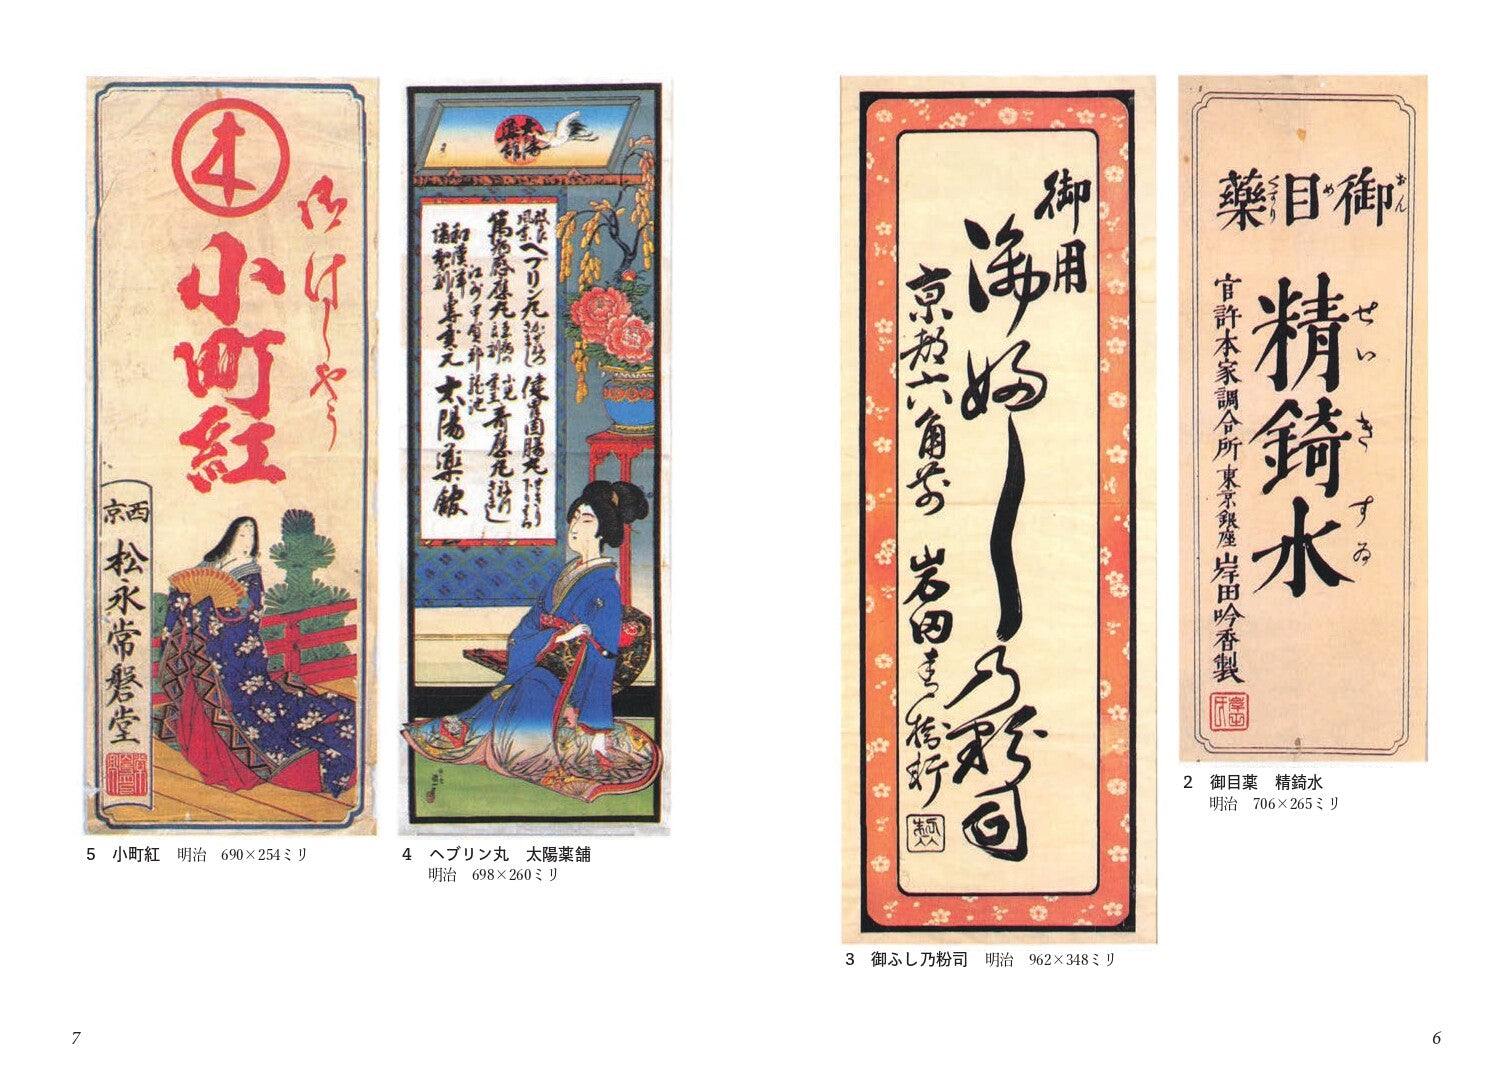 御目藥
おん
め
くすり
精錡水
せいきすゐ
官許本家調合所 東京銀座 岸田吟香製
2 御目薬 精錡水
明治 706×265ミリ
御用
京都六角
岩田
製
3 御ふし乃粉司 明治 962×348ミリ
太陽薬舘
ヘブリン丸
健胃固腸丸
和漢洋
江州甲賀郡龍池
諸製剤専賣元
太陽薬舘
4 ヘブリン丸 太陽薬舗
明治 698×260ミリ
本
小町紅
西京
松永常磐堂
5 小町紅 明治 690×254ミリ
7
6